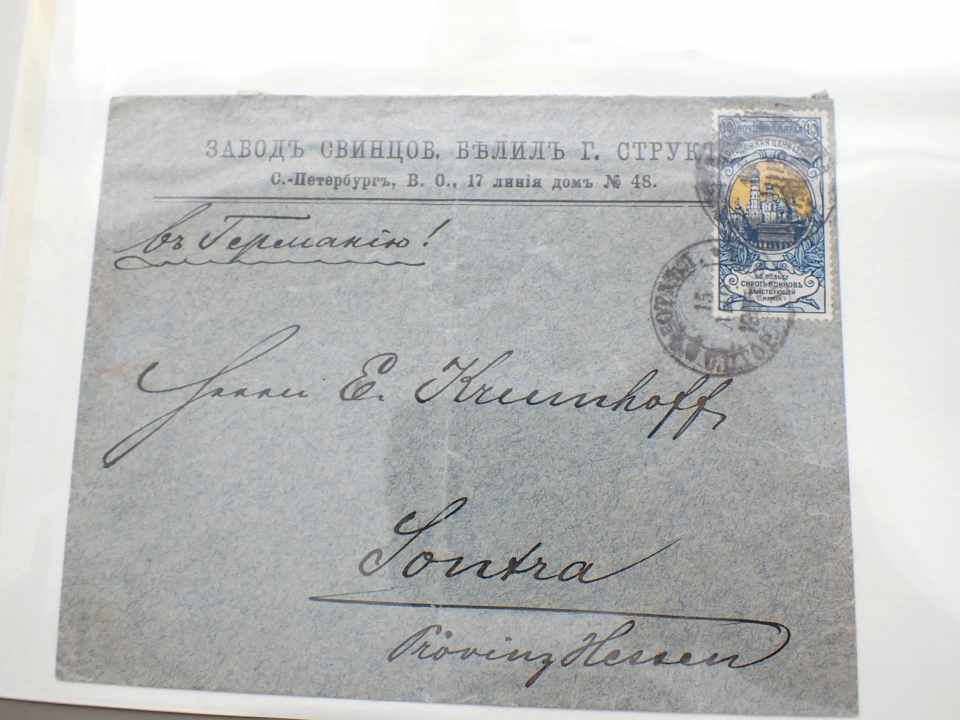 ЗАВОДЪ СВИНЦОВ. БѢЛИЛЪ Г. СТРУКЪ
С.-Петербургъ, В. О., 17 линія домъ № 48.
въ Германію!
Herrn E. Krumhoff
Sontra
Provinz Hessen
ВЪ ПОЛЬЗУ
СИРОТЪ ВОИНОВЪ
ДѢЙСТВУЮЩЕЙ
АРМІИ
15